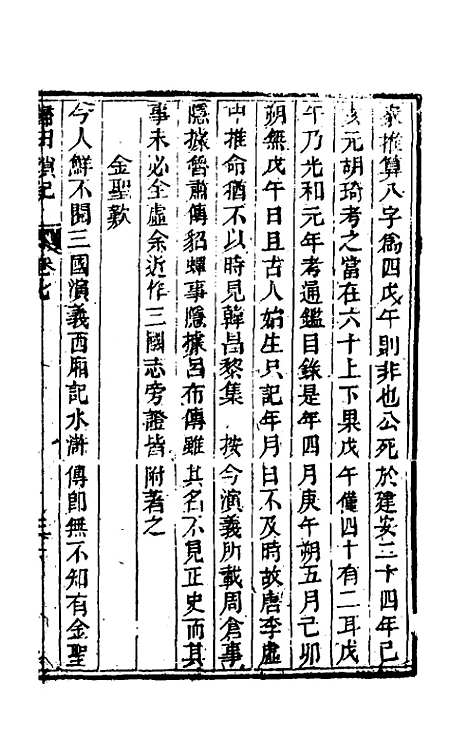 家推算八字為四戊午則非也公死於建安二十四年己
亥元胡琦考之當在六十上下果戊午僅四十有二耳戊
午乃光和元年考通鑑目錄是年四月庚午朔五月己卯
朔無戊午日且古人始生只記年月日不及時故唐李虛
中推命猶不以時見韓昌黎集 按今演義所載周倉事
隱據魯肅傳貂蟬事隱據呂布傳雖其名不見正史而其
事未必全虛余近作三國志旁證皆附著之
金聖歎
今人鮮不閱三國演義西廂記水滸傳即無不知有金聖
瑣記 卷七